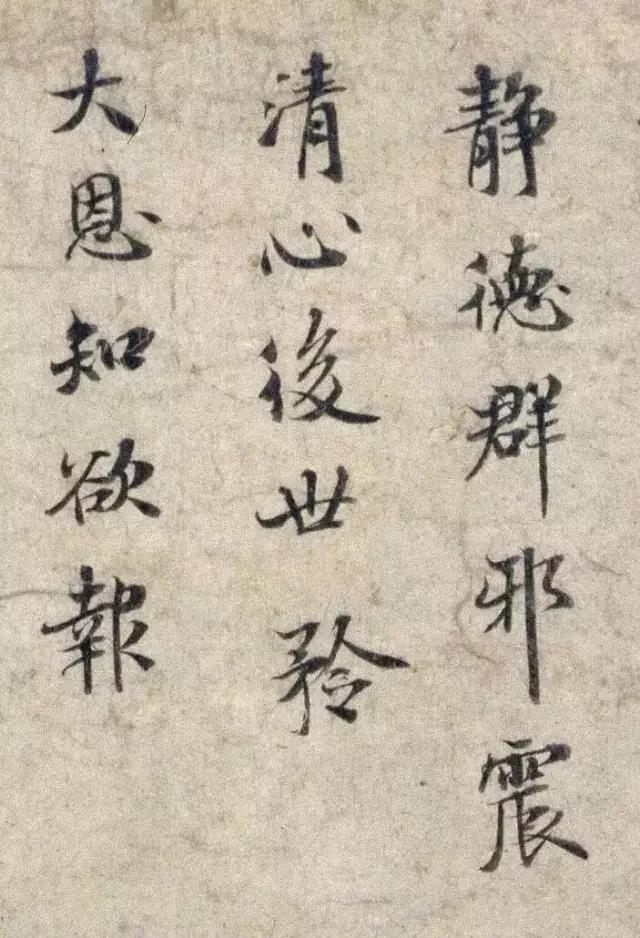 靜德群邪震
清心後世矜
大恩知欲報